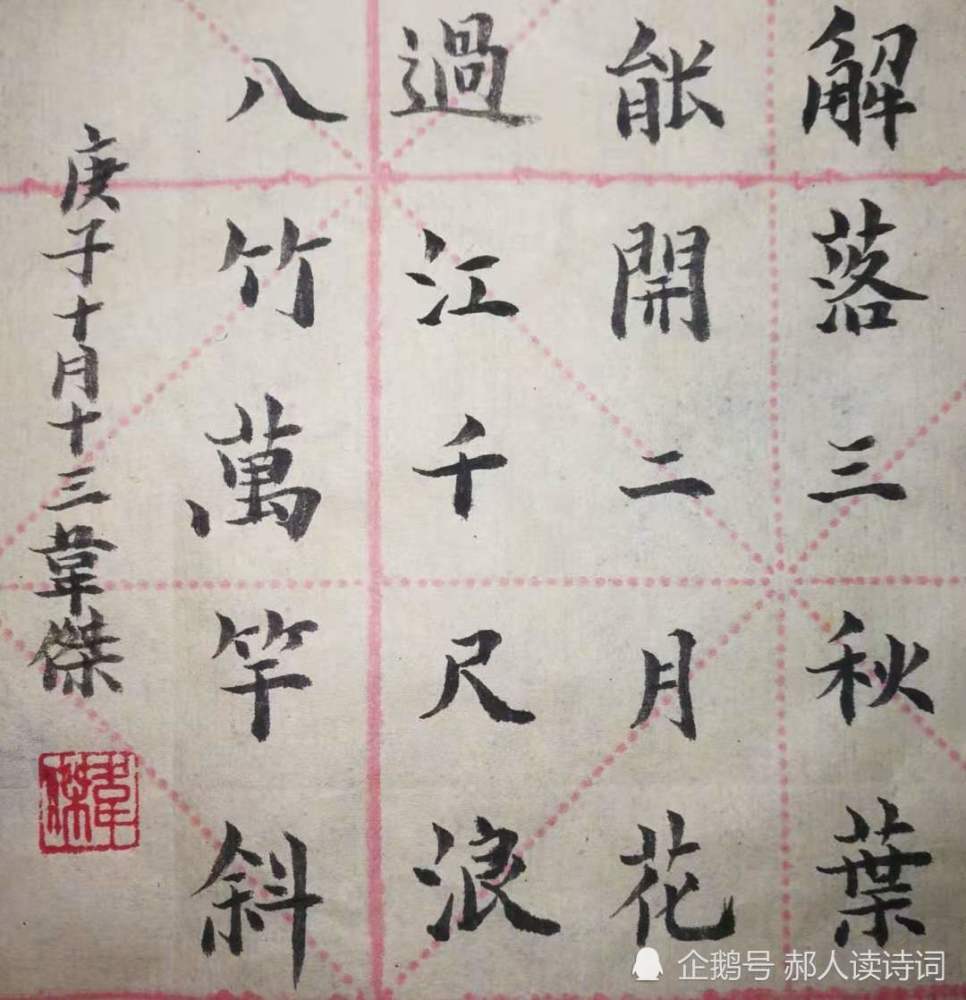 解落三秋葉
能開二月花
過江千尺浪
八竹萬竿斜
庚子十月十三韋傑
韋傑
企鹅号 郝人读诗词